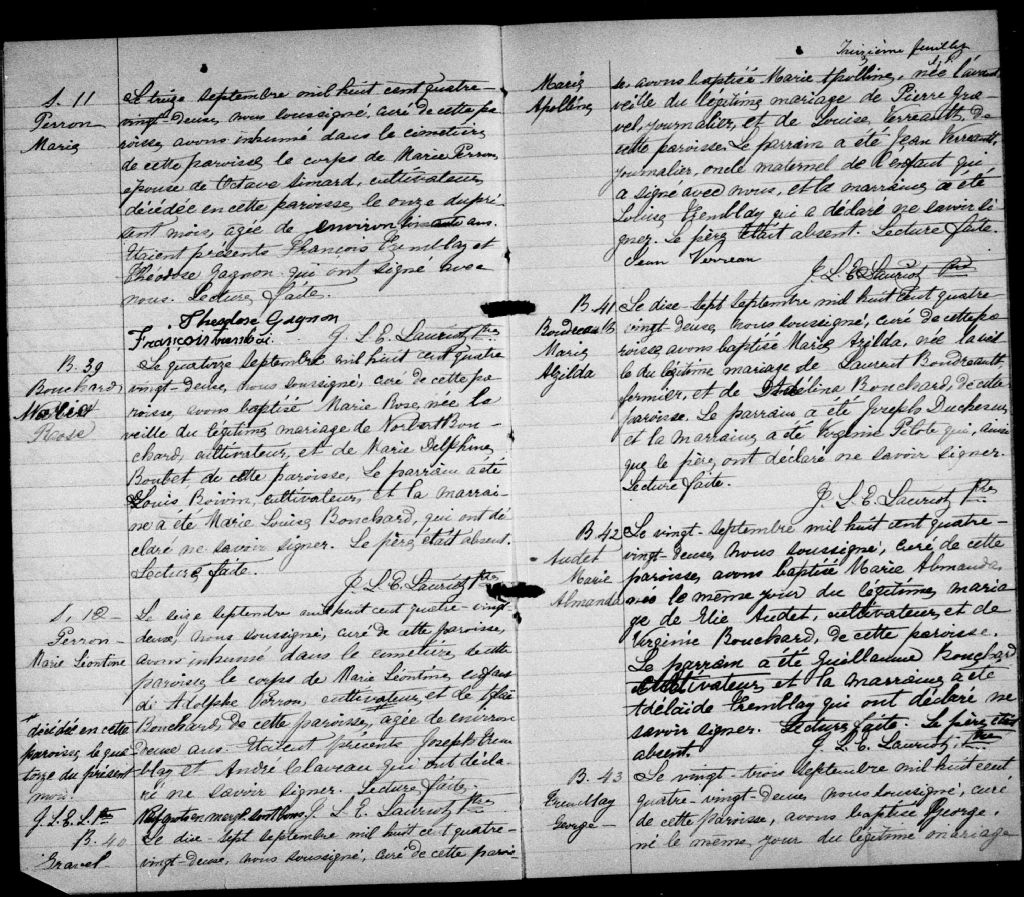 S. 11
Perron
Marie
Le treize septembre mil huit cent quatre-
vingt-deux, nous soussigné, curé de cette pa
roisse avons inhumé dans le cimetière
de cette paroisse le corps de Marie Perron,
épouse de Octave Simard, cultivateur,
décédée en cette paroisse le onze du pré-
sent mois, agée de environ ans.
Étaient présents François Tremblay et
Théodose Gagnon qui ont signé avec
nous. Lecture faite.
Theodose Gagnon
François J. L. E. Lauriot Ptre
B. 39
Bouchard
Marie
Rose
Le quatorze septembre mil huit cent quatre
vingt-deux, nous soussigné, curé de cette pa
roisse, avons baptisé Marie Rose, née la
veille du légitime mariage de Norbert Bou-
chard, cultivateur, et de Marie Delphine
Boubet de cette paroisse. Le parrain a été
Louis Boivin, cultivateur, et la marrai-
ne a été Marie Louise Bouchard, qui ont dé-
claré ne savoir signer. Le père était absent.
Lecture faite.
J. L. E. Lauriot Ptre
S. 12
Perron
Marie Léontine
Le seize septembre mil huit cent quatre-vingt-
deux, nous soussigné, curé de cette paroisse,
avons inhumé dans le cimetière de cette
paroisse le corps de Marie Léontine, enfant
de Adolphe Perron, cultivateur, et de
Bouchard, de cette paroisse, agée de environ
deux ans. Étaient présents Joseph Trem
blay et André Claveau qui ont décla-
ré ne savoir signer. Lecture faite.
J. L. E. Lauriot Ptre
décédée en cette
paroisse le qua-
torze du présent
mois.
J. L. E. L. Ptre
B. 40
Gravel
Le dix-sept septembre mil huit cent quatre-
vingt-deux, nous soussigné, curé de cette parois-
Treizième feuillet
Marie
Apolline
se, avons baptisé Marie Apolline, née l'avant
veille du légitime mariage de Pierre Gra
vel, journalier, et de Louise Verreault, de
cette paroisse. Le parrain a été Jean Verreault,
journalier, oncle maternel de l'enfant qui
a signé avec nous, et la marraine a été
Louise Tremblay qui a déclaré ne savoir si
gner. Le père était absent. Lecture faite.
Jean Verreau
J. L. E. Lauriot Ptre
B. 41
Boudreault
Marie
Azilda
Le dix-sept septembre mil huit cent quatre
vingt-deux, nous soussigné, curé de cette pa-
roisse, avons baptisé Marie Azilda, née la veil
le du légitime mariage de Laurent Boudreault,
fermier, et de Adélina Bouchard, de cette
paroisse. Le parrain a été Joseph Duchesne,
et la marraine a été Virginie Pilote qui, ainsi
que le père, ont déclaré ne savoir signer.
Lecture faite.
J. L. E. Lauriot Ptre
B. 42
Audet
Marie
Almanda
Le vingt septembre mil huit cent quatre-
vingt-deux, nous soussigné, curé de cette
paroisse, avons baptisé Marie Almanda,
née le même jour du légitime maria
ge de Elie Audet, cultivateur, et de
Virginie Bouchard, de cette paroisse.
Le parrain a été Guillaume Bouchard
cultivateur, et la marraine a été
Adélaide Tremblay qui ont déclaré ne
savoir signer. Lecture faite. Le père était
absent.
J. L. E. Lauriot, Ptre
B. 43
Tremblay
George
Le vingt-trois septembre mil huit cent
quatre-vingt-deux nous soussigné, curé
de cette paroisse, avons baptisé George,
né le même jour du légitime mariage